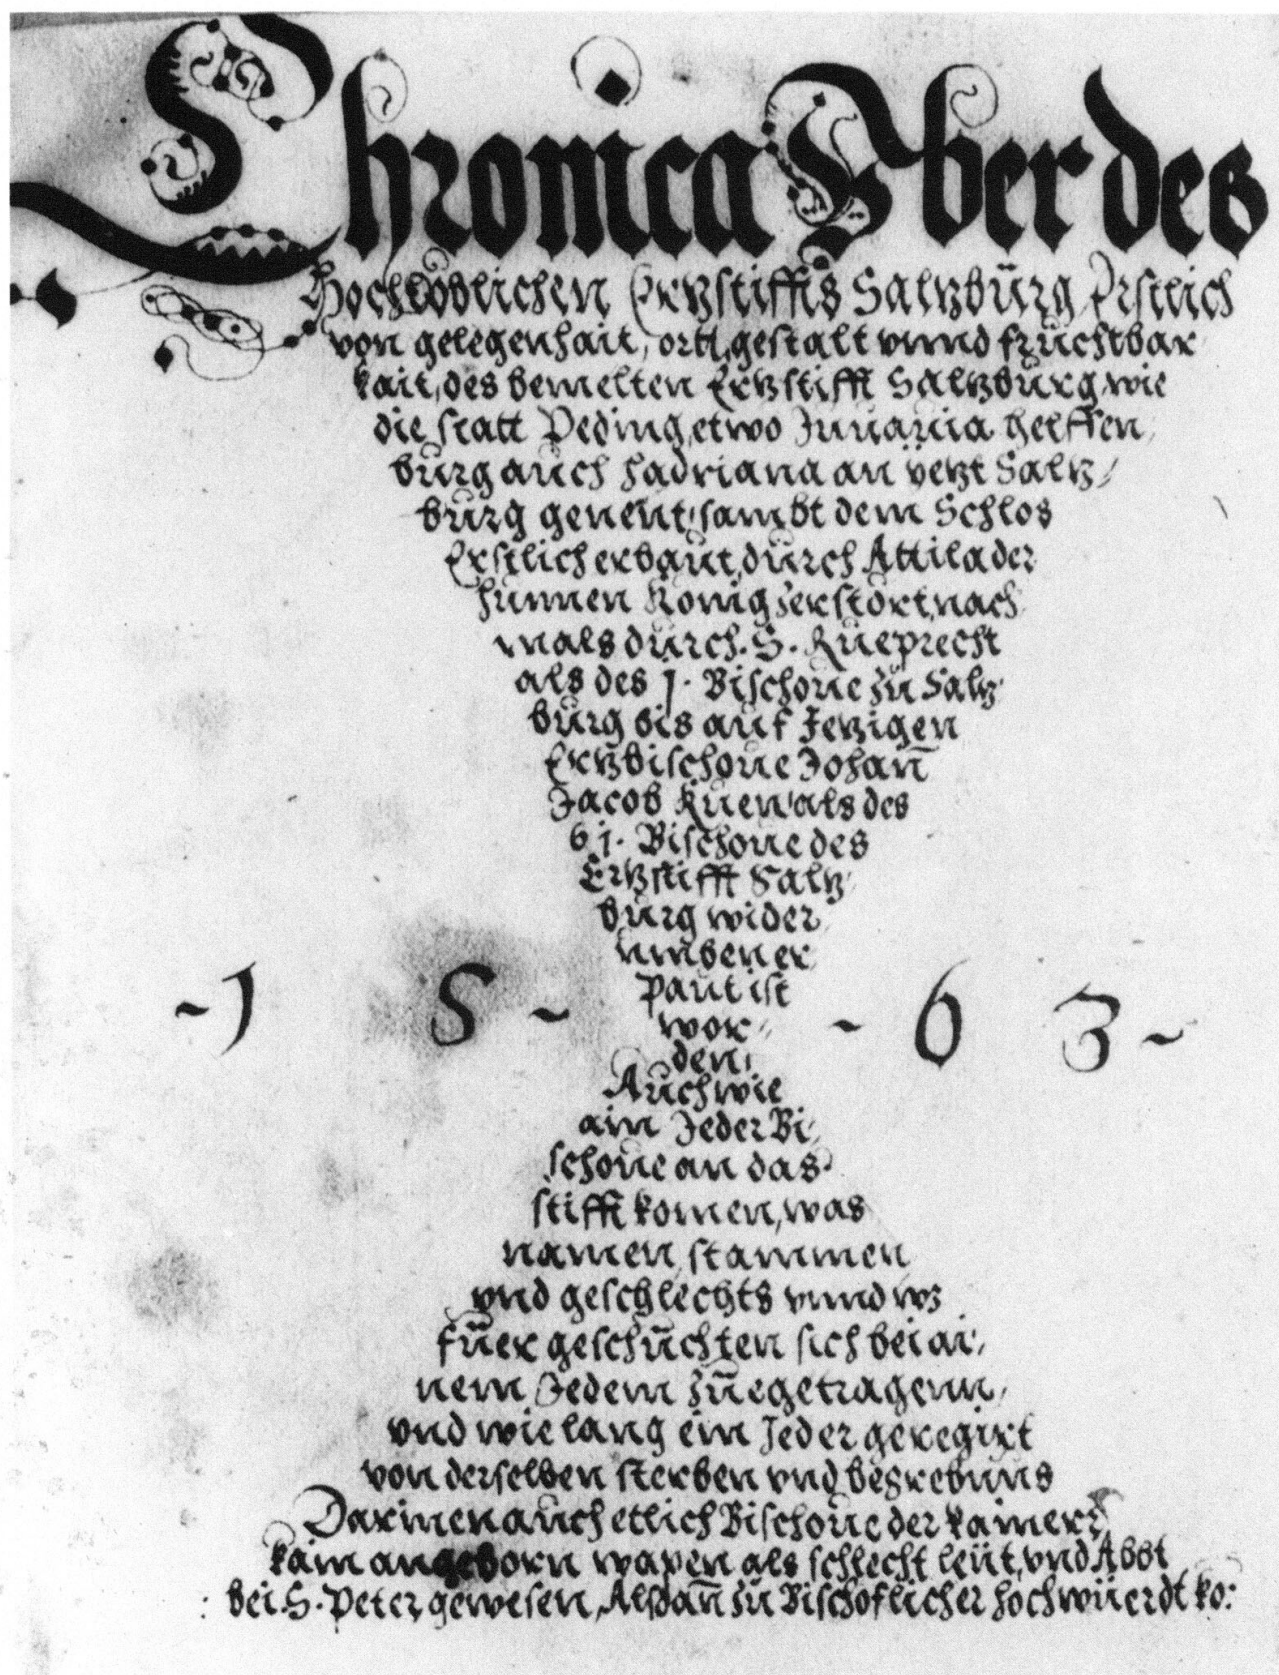 Chronica Vber des
Hochlöblichen Ertzstiffts Saltzbürg, Erstlich
von gelegenhait, ortt, gestalt vnnd früchtbar
kait, des bemelten Ertzstifft Saltzbürg, wie
die statt Peding, etwo Juuauia, helffen,
bürg auch hadriana an yetzt Saltz,
bürg genent, sambt dem Schlos
Erstlich erbaut, dürch Attila der
hünnen König zerstört, nach
mals dürch. S. Rüeprecht
als des j. Bischoue zü Saltz
bürg bis auf Jetzigen
Ertzbischoue Johan̄
Jacob Küen, als des
61. Bischoue des
Ertzstifft Saltz
bürg wider
umben er
paut ist
wor
den,
- 1 5 - - 6 3 -
Auch wie
ain Jeder Bi,
schoue an das
stifft komen, was
namen, stammen
vnd geschlechts vnnd wz
füer geschüchten sich bei ai,
nem Jedem züegetragenn,
vnd wie lang ein Jeder geregirt
von derselben sterben vnd begrebnus
Darinen auch etlich Bischoue der kainer
kain angeborn wapen als schlecht leüt, vnd Abbt
bei. S. Peter, gewesen, Alsdan̄ zü Bischoflicher hochwüerdt ko: